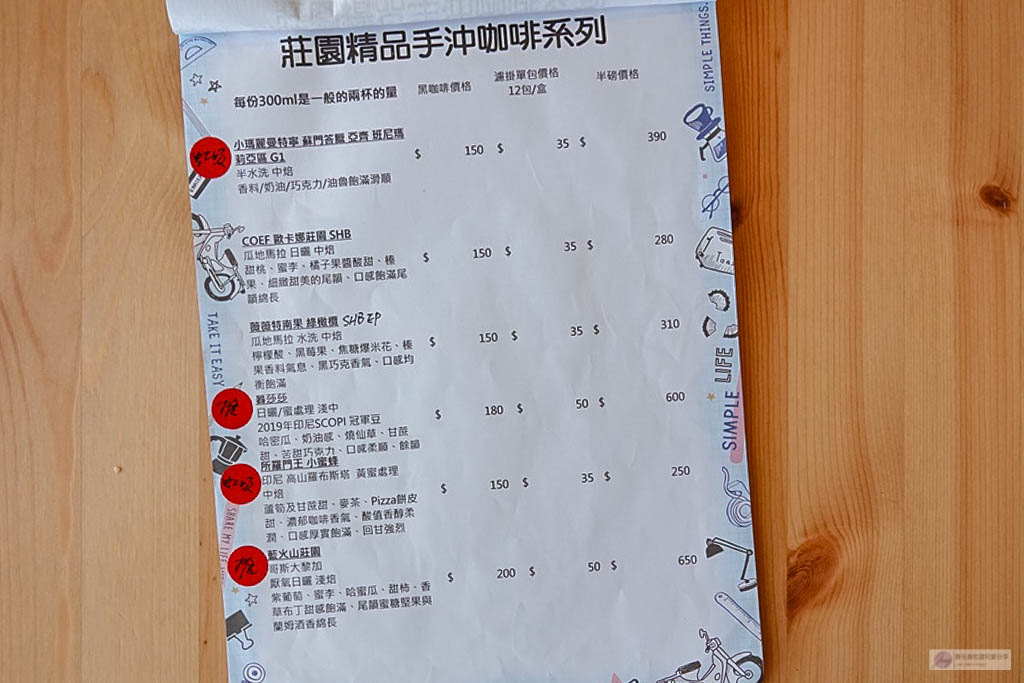 莊園精品手沖咖啡系列
每份300ml是一般的兩杯的量 黑咖啡價格 濾掛單包價格 半磅價格
12包/盒
小瑪麗曼特寧 蘇門答臘 亞齊 班尼瑪
莉亞區 G1 $ 150 $ 35 $ 390
半水洗 中焙
香料/奶油/巧克力/油魯飽滿滑順
COEF 歐卡娜莊園 SHB
瓜地馬拉 日曬 中焙 $ 150 $ 35 $ 280
甜桃、蜜李、橘子果醬酸甜、榛
果、細緻甜美的尾韻、口感飽滿尾
韻綿長
薇薇特南果 綠橄欖 SHB EP
瓜地馬拉 水洗 中焙 $ 150 $ 35 $ 310
檸檬酸、黑莓果、焦糖爆米花、榛
果香料氣息、黑巧克香氣、口感均
衡飽滿
推 綠莎莎
日曬/蜜處理 淺中 $ 180 $ 50 $ 600
2019年印尼SCOPI 冠軍豆
哈密瓜、奶油感、燒仙草、甘蔗
甜、苦甜巧克力、口感柔順、餘韻
所羅門王 小蜜蜂
印尼 高山羅布斯塔 黃蜜處理
中焙 $ 150 $ 35 $ 250
蘆筍及甘蔗甜、麥茶、Pizza餅皮
甜、濃郁咖啡香氣、酸值香醇柔
潤、口感厚實飽滿、回甘強烈
推 藍火山莊園
哥斯大黎加
厭氧日曬 淺焙 $ 200 $ 50 $ 650
紫葡萄、蜜李、哈蜜瓜、甜柿、香
草布丁甜感飽滿、尾韻蜜糖堅果與
蘭姆酒香綿長
SIMPLE THINGS.
TAKE IT EASY
SIMPLE LIFE
SHARE MY LIFE